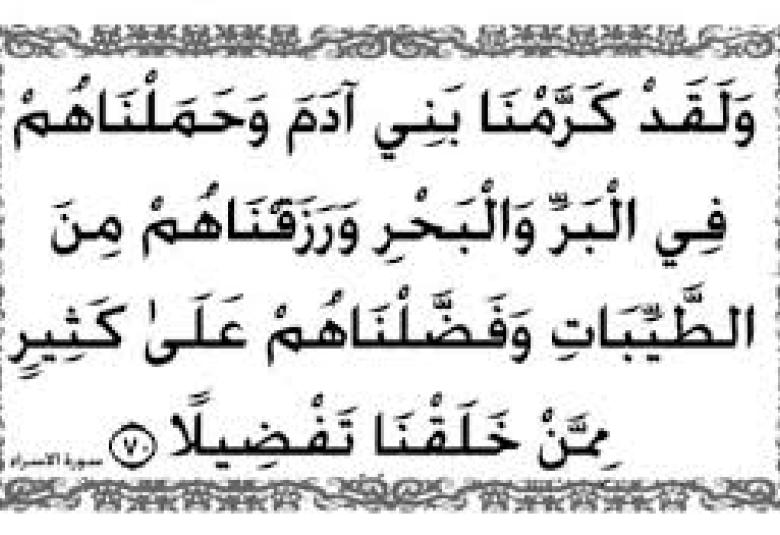 وَلَقَدْ كَرَّمْنَا بَنِي آدَمَ وَحَمَلْنَاهُمْ
فِي الْبَرِّ وَالْبَحْرِ وَرَزَقْنَاهُمْ مِنَ
الطَّيِّبَاتِ وَفَضَّلْنَاهُمْ عَلَىٰ كَثِيرٍ
مِمَّنْ خَلَقْنَا تَفْضِيلًا ٧٠ سورة الاسراء